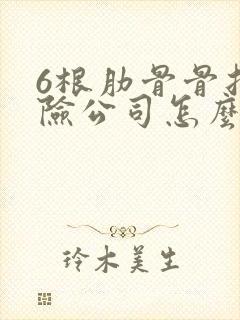 6根肋骨骨
险公司怎麼
玲木美生